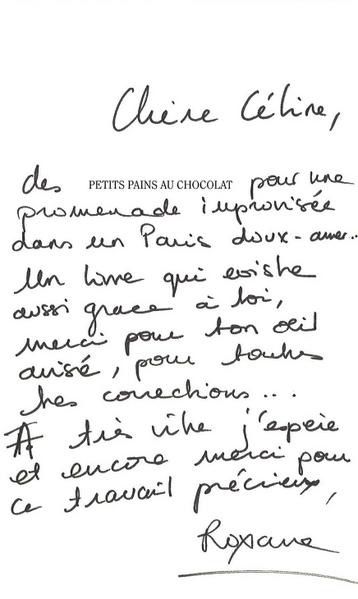 Chère Céline,
des PETITS PAINS AU CHOCOLAT pour une
promenade improvisée
dans un Paris doux-amer..
Un livre qui existe
aussi grace à toi,
merci pour ton oeil
avisé, pour toutes
tes corrections...
A très vite j'espère
et encore merci pour
ce travail précieux,
Roxane